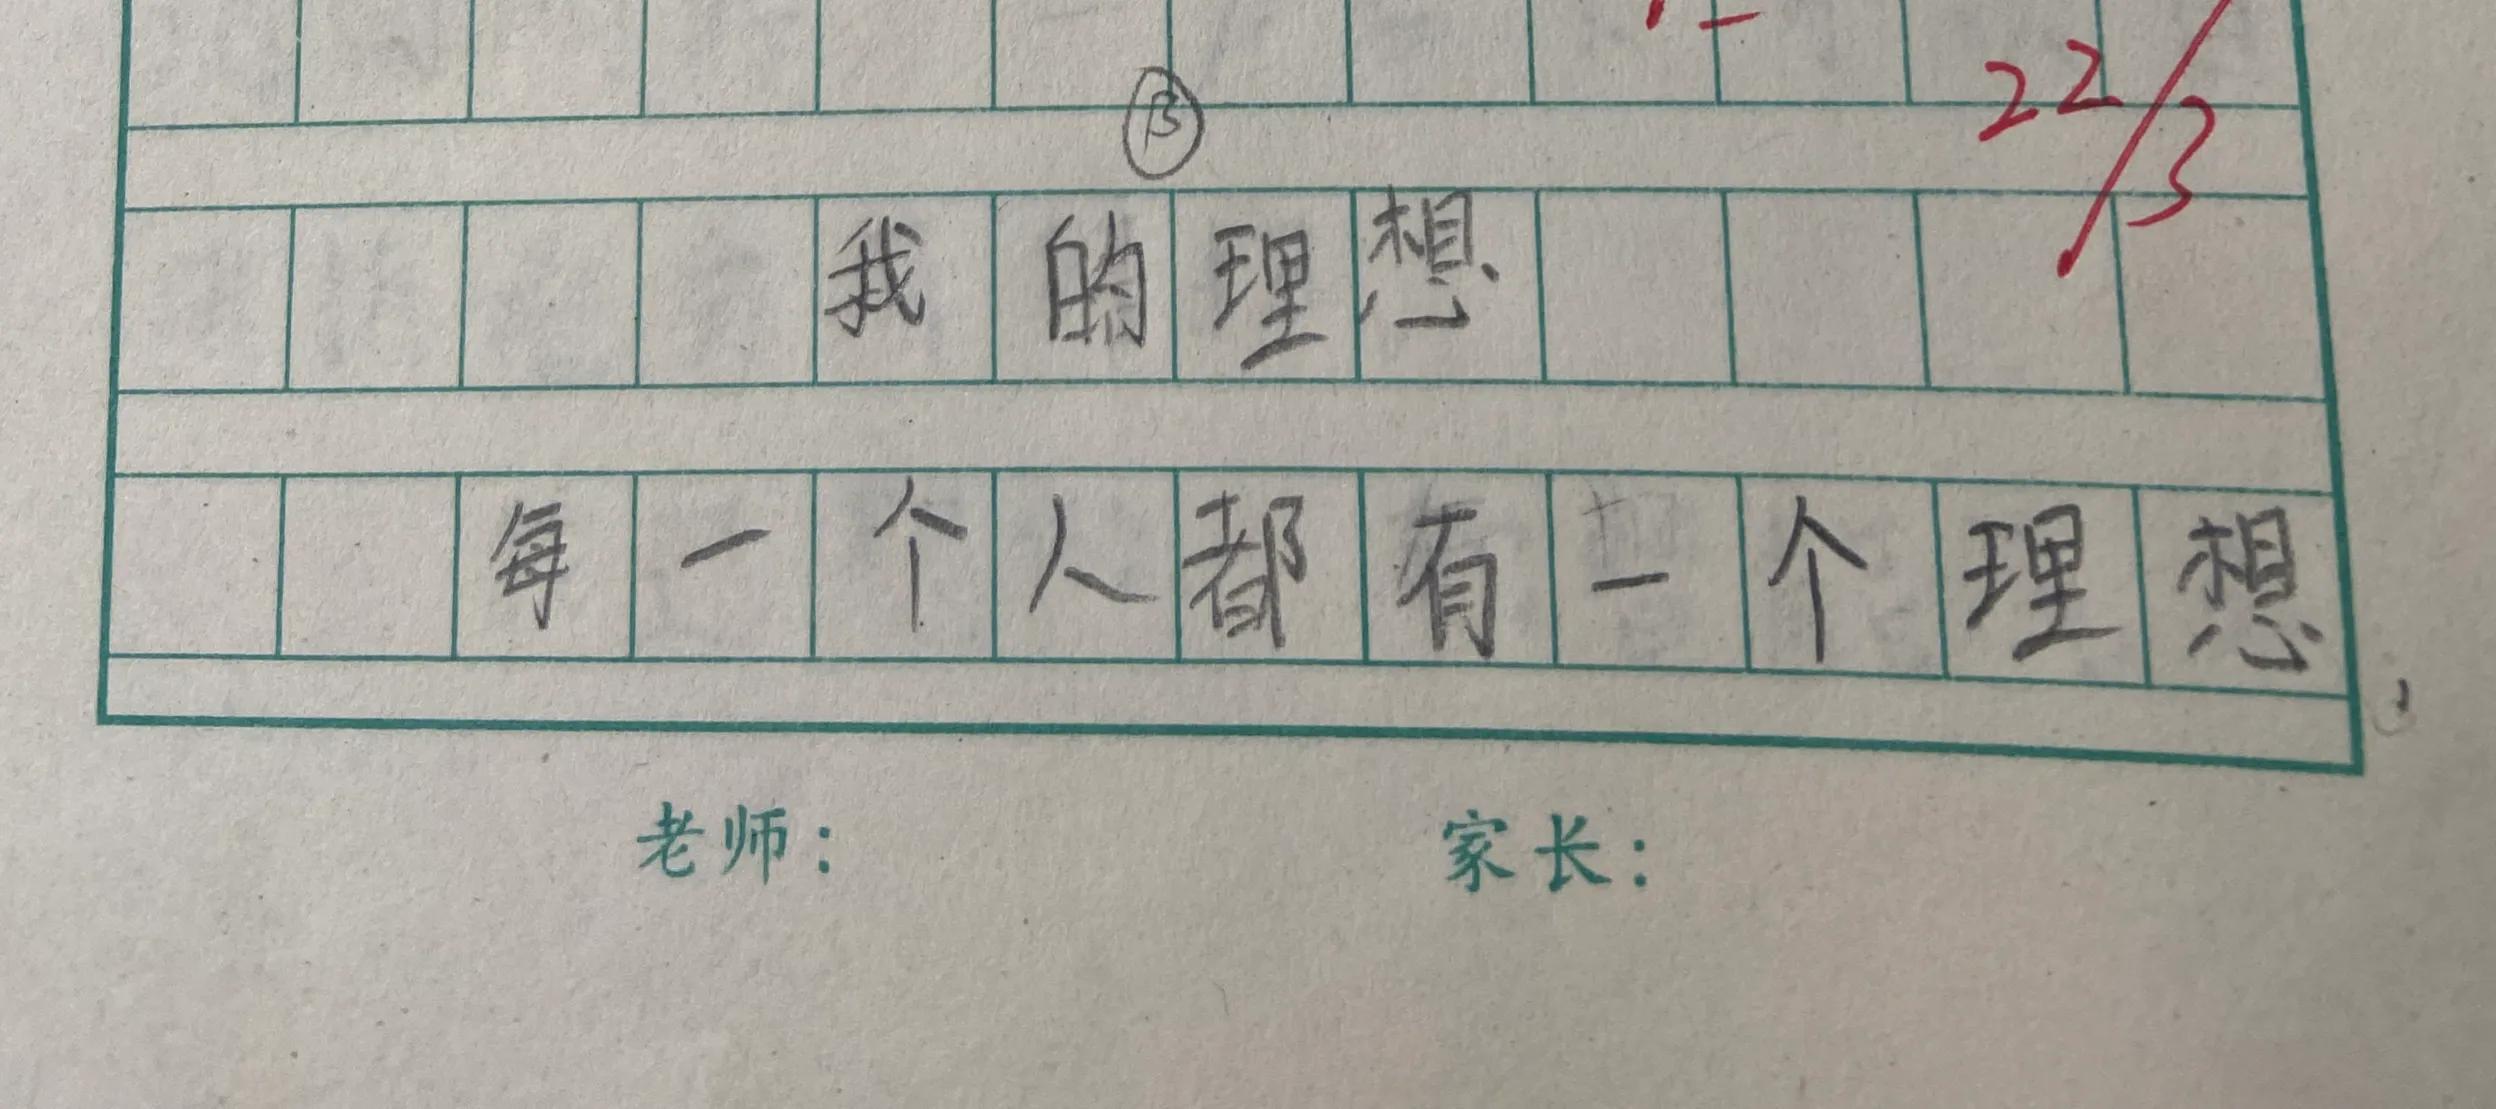 22/3
⑬
我的理想
每一个人都有一个理想
老师： 家长：